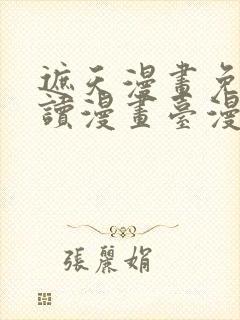 遮天漫畫免
讀漫畫臺漫
張麗娟